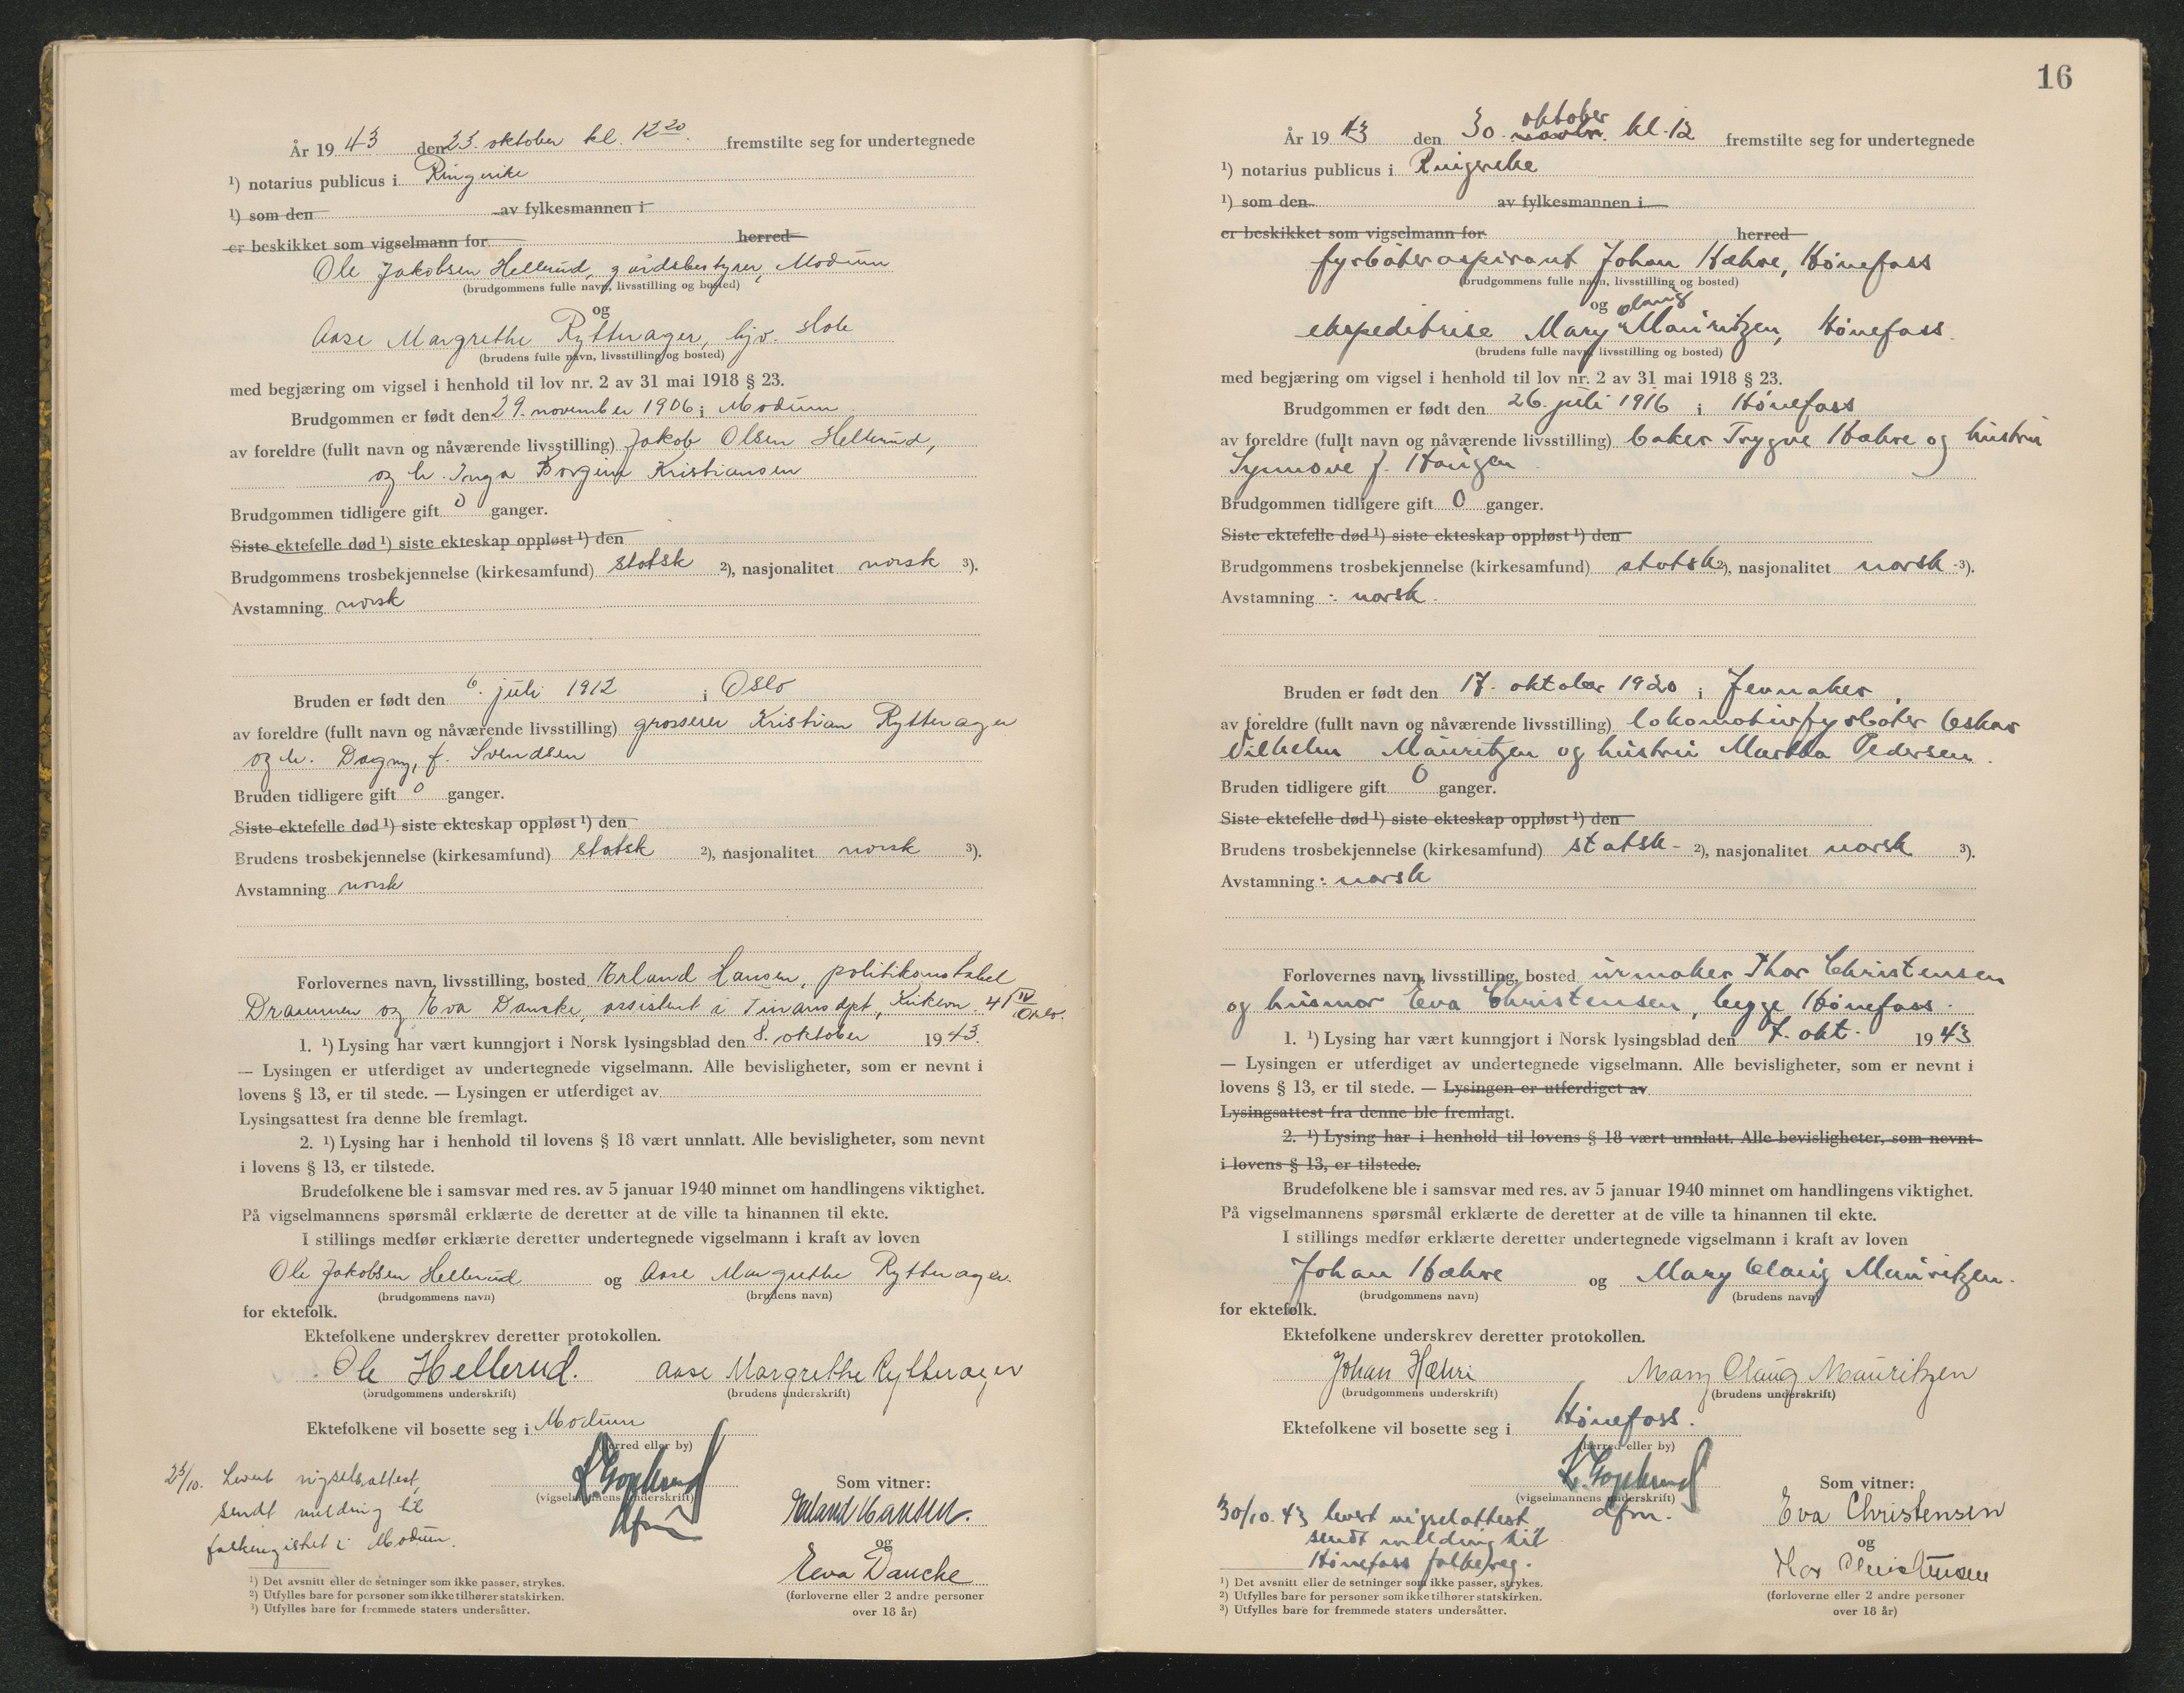 År 19 43 den 23. oktober kl. 12 20. fremstilte seg for undertegnede
¹) notarius publicus i Ringerike
¹) som den av fylkesmannen i
er beskikket som vigselmann for herred
Ole Jakobsen Hellerud, gårdsbestyrer, Modum
(brudgommens fulle navn, livsstilling og bosted)
og
Aase Margrethe Rytterager, hjv. stole
(brudens fulle navn, livsstilling og bosted)
med begjæring om vigsel i henhold til lov nr. 2 av 31 mai 1918 § 23.
Brudgommen er født den 29. november 1906 i Modum
av foreldre (fullt navn og nåværende livsstilling) Jakob Olsen Hellerud,
og h. Inga Borgine Kristiansen
Brudgommen tidligere gift 0 ganger.
Siste ektefelle død ¹) siste ekteskap oppløst ¹) den
Brudgommens trosbekjennelse (kirkesamfund) statsk ²), nasjonalitet norsk ³).
Avstamning norsk
Bruden er født den 6. juli 1912 i Oslo
av foreldre (fullt navn og nåværende livsstilling) grosserer Kristian Rytterager
og h. Dagny, f. Svendsen
Bruden tidligere gift 0 ganger.
Siste ektefelle død ¹) siste ekteskap oppløst ¹) den
Brudens trosbekjennelse (kirkesamfund) statsk ²), nasjonalitet norsk ³).
Avstamning norsk
Forlovernes navn, livsstilling, bosted Erland Hansen, politikonstabel
Drammen og Eva Dancke, assistent i Finansdept, Kirkevn. 41 IV Oslo.
1. ¹) Lysing har vært kunngjort i Norsk lysingsblad den 8. oktober 19 43.
— Lysingen er utferdiget av undertegnede vigselmann. Alle bevisligheter, som er nevnt i
lovens § 13, er til stede. — Lysingen er utferdiget av
Lysingsattest fra denne ble fremlagt.
2. ¹) Lysing har i henhold til lovens § 18 vært unnlatt. Alle bevisligheter, som nevnt
i lovens § 13, er tilstede.
Brudefolkene ble i samsvar med res. av 5 januar 1940 minnet om handlingens viktighet.
På vigselmannens spørsmål erklærte de deretter at de ville ta hinannen til ekte.
I stillings medfør erklærte deretter undertegnede vigselmann i kraft av loven
Ole Jakobsen Hellerud og Aase Margrethe Rytterager.
(brudgommens navn) (brudens navn)
for ektefolk.
Ektefolkene underskrev deretter protokollen.
Ole Hellerud. Aase Margrethe Rytterager
(brudgommens underskrift) (brudens underskrift)
Ektefolkene vil bosette seg i Modum
(herred eller by)
(vigselmannens underskrift)
23/10. Levert vigselsattest,
sendt melding til
folkeregistret i Modum.
Som vitner:
Erland Hansen.
og
Eva Dancke
(forloverne eller 2 andre personer
over 18 år)
¹) Det avsnitt eller de setninger som ikke passer, strykes.
²) Utfylles bare for personer som ikke tilhører statskirken.
³) Utfylles bare for fremmede staters undersåtter.
16
oktober
År 19 43 den 30. novbr. kl. 12 fremstilte seg for undertegnede
¹) notarius publicus i Ringerike
¹) som den av fylkesmannen i
er beskikket som vigselmann for herred
fyrbøteraspirant Johan Hæhre, Hønefoss
(brudgommens fulle navn, livsstilling og bosted)
og Olaug
ekspeditrise Mary Mauritzen, Hønefoss.
(brudens fulle navn, livsstilling og bosted)
med begjæring om vigsel i henhold til lov nr. 2 av 31 mai 1918 § 23.
Brudgommen er født den 26. juli 1916 i Hønefoss
av foreldre (fullt navn og nåværende livsstilling) baker Trygve Hæhre og hustru
Synnøve f. Haugen
Brudgommen tidligere gift 0 ganger.
Siste ektefelle død ¹) siste ekteskap oppløst ¹) den
Brudgommens trosbekjennelse (kirkesamfund) statsk ²), nasjonalitet norsk - ³).
Avstamning : norsk.
Bruden er født den 17. oktober 1920 i Jevnaker.
av foreldre (fullt navn og nåværende livsstilling) lokomotivfyrbøter Oskar
Vilhelm Mauritzen og hustru Martha Pedersen.
Bruden tidligere gift 0 ganger.
Siste ektefelle død ¹) siste ekteskap oppløst ¹) den
Brudens trosbekjennelse (kirkesamfund) statsk - ²), nasjonalitet norsk ³).
Avstamning : norsk
Forlovernes navn, livsstilling, bosted urmaker Thor Christensen
og husmor Eva Christensen, begge Hønefoss.
1. ¹) Lysing har vært kunngjort i Norsk lysingsblad den 7. okt. 19 43
— Lysingen er utferdiget av undertegnede vigselmann. Alle bevisligheter, som er nevnt i
lovens § 13, er til stede. — Lysingen er utferdiget av
Lysingsattest fra denne ble fremlagt.
2. ¹) Lysing har i henhold til lovens § 18 vært unnlatt. Alle bevisligheter, som nevnt
i lovens § 13, er tilstede.
Brudefolkene ble i samsvar med res. av 5 januar 1940 minnet om handlingens viktighet.
På vigselmannens spørsmål erklærte de deretter at de ville ta hinannen til ekte.
I stillings medfør erklærte deretter undertegnede vigselmann i kraft av loven
Johan Hæhre og Mary Olaug Mauritzen.
(brudgommens navn) (brudens navn)
for ektefolk.
Ektefolkene underskrev deretter protokollen.
Johan Hæhre Mary Olaug Mauritzen
(brudgommens underskrift) (brudens underskrift)
Ektefolkene vil bosette seg i Hønefoss.
(herred eller by)
(vigselmannens underskrift)
dfm.
30/10. 43 levert vigselattest
sendt melding til
Hønefoss folkereg.
Som vitner:
Eva Christensen
og
Thor Christensen
(forloverne eller 2 andre personer
over 18 år)
¹) Det avsnitt eller de setninger som ikke passer, strykes.
²) Utfylles bare for personer som ikke tilhører statskirken.
³) Utfylles bare for fremmede staters undersåtter.